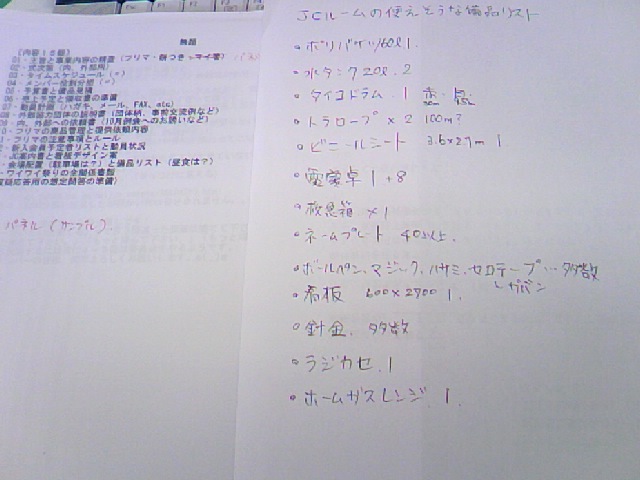 無題
《内容18部》
01・主旨と事業内容の精査(フリマ・餅つき・マイ箸)
02・式次第(内、外部用)
03・タイムスケジュール(〃)
04・メンバー役割分担(〃)
05・予算書と備品見積
06・売上予定と領収書の準備
07・動員計画(ハガキ、メール、FAX、etc)
08・外部協力団体の説明書(団体柄、事前交流例など)
内、外部への依頼書(10月例会へのお誘いなど)
・フリマの商品管理と提供依頼内容
・フリマの注意事項とルール
・新入会員予定者リストと動員状況
・式案内書と看板デザイン案
・会場配置(駐車場は?)と備品リスト(昼食は?)
・ワイワイ祭りの会関係書類
質疑応答用の想定問答の準備)
パネル(サンプル)
JCルームの使えそうな備品リスト
・ポリバケツ60l 1.
・水タンク20l. 2
・タイコドラム. 1
・トラロープ × 2 100m?
・ビニールシート 3.6×27m 1
・長卓 1+8
・救急箱 ×1
・ネームプレート 40以上.
・ボールペン、マジック、ハサミ、セロテープ…多数
・看板 600×2700 1.
・針金. 多数
・ラジカセ. 1
・ホームガスレンジ. 1.